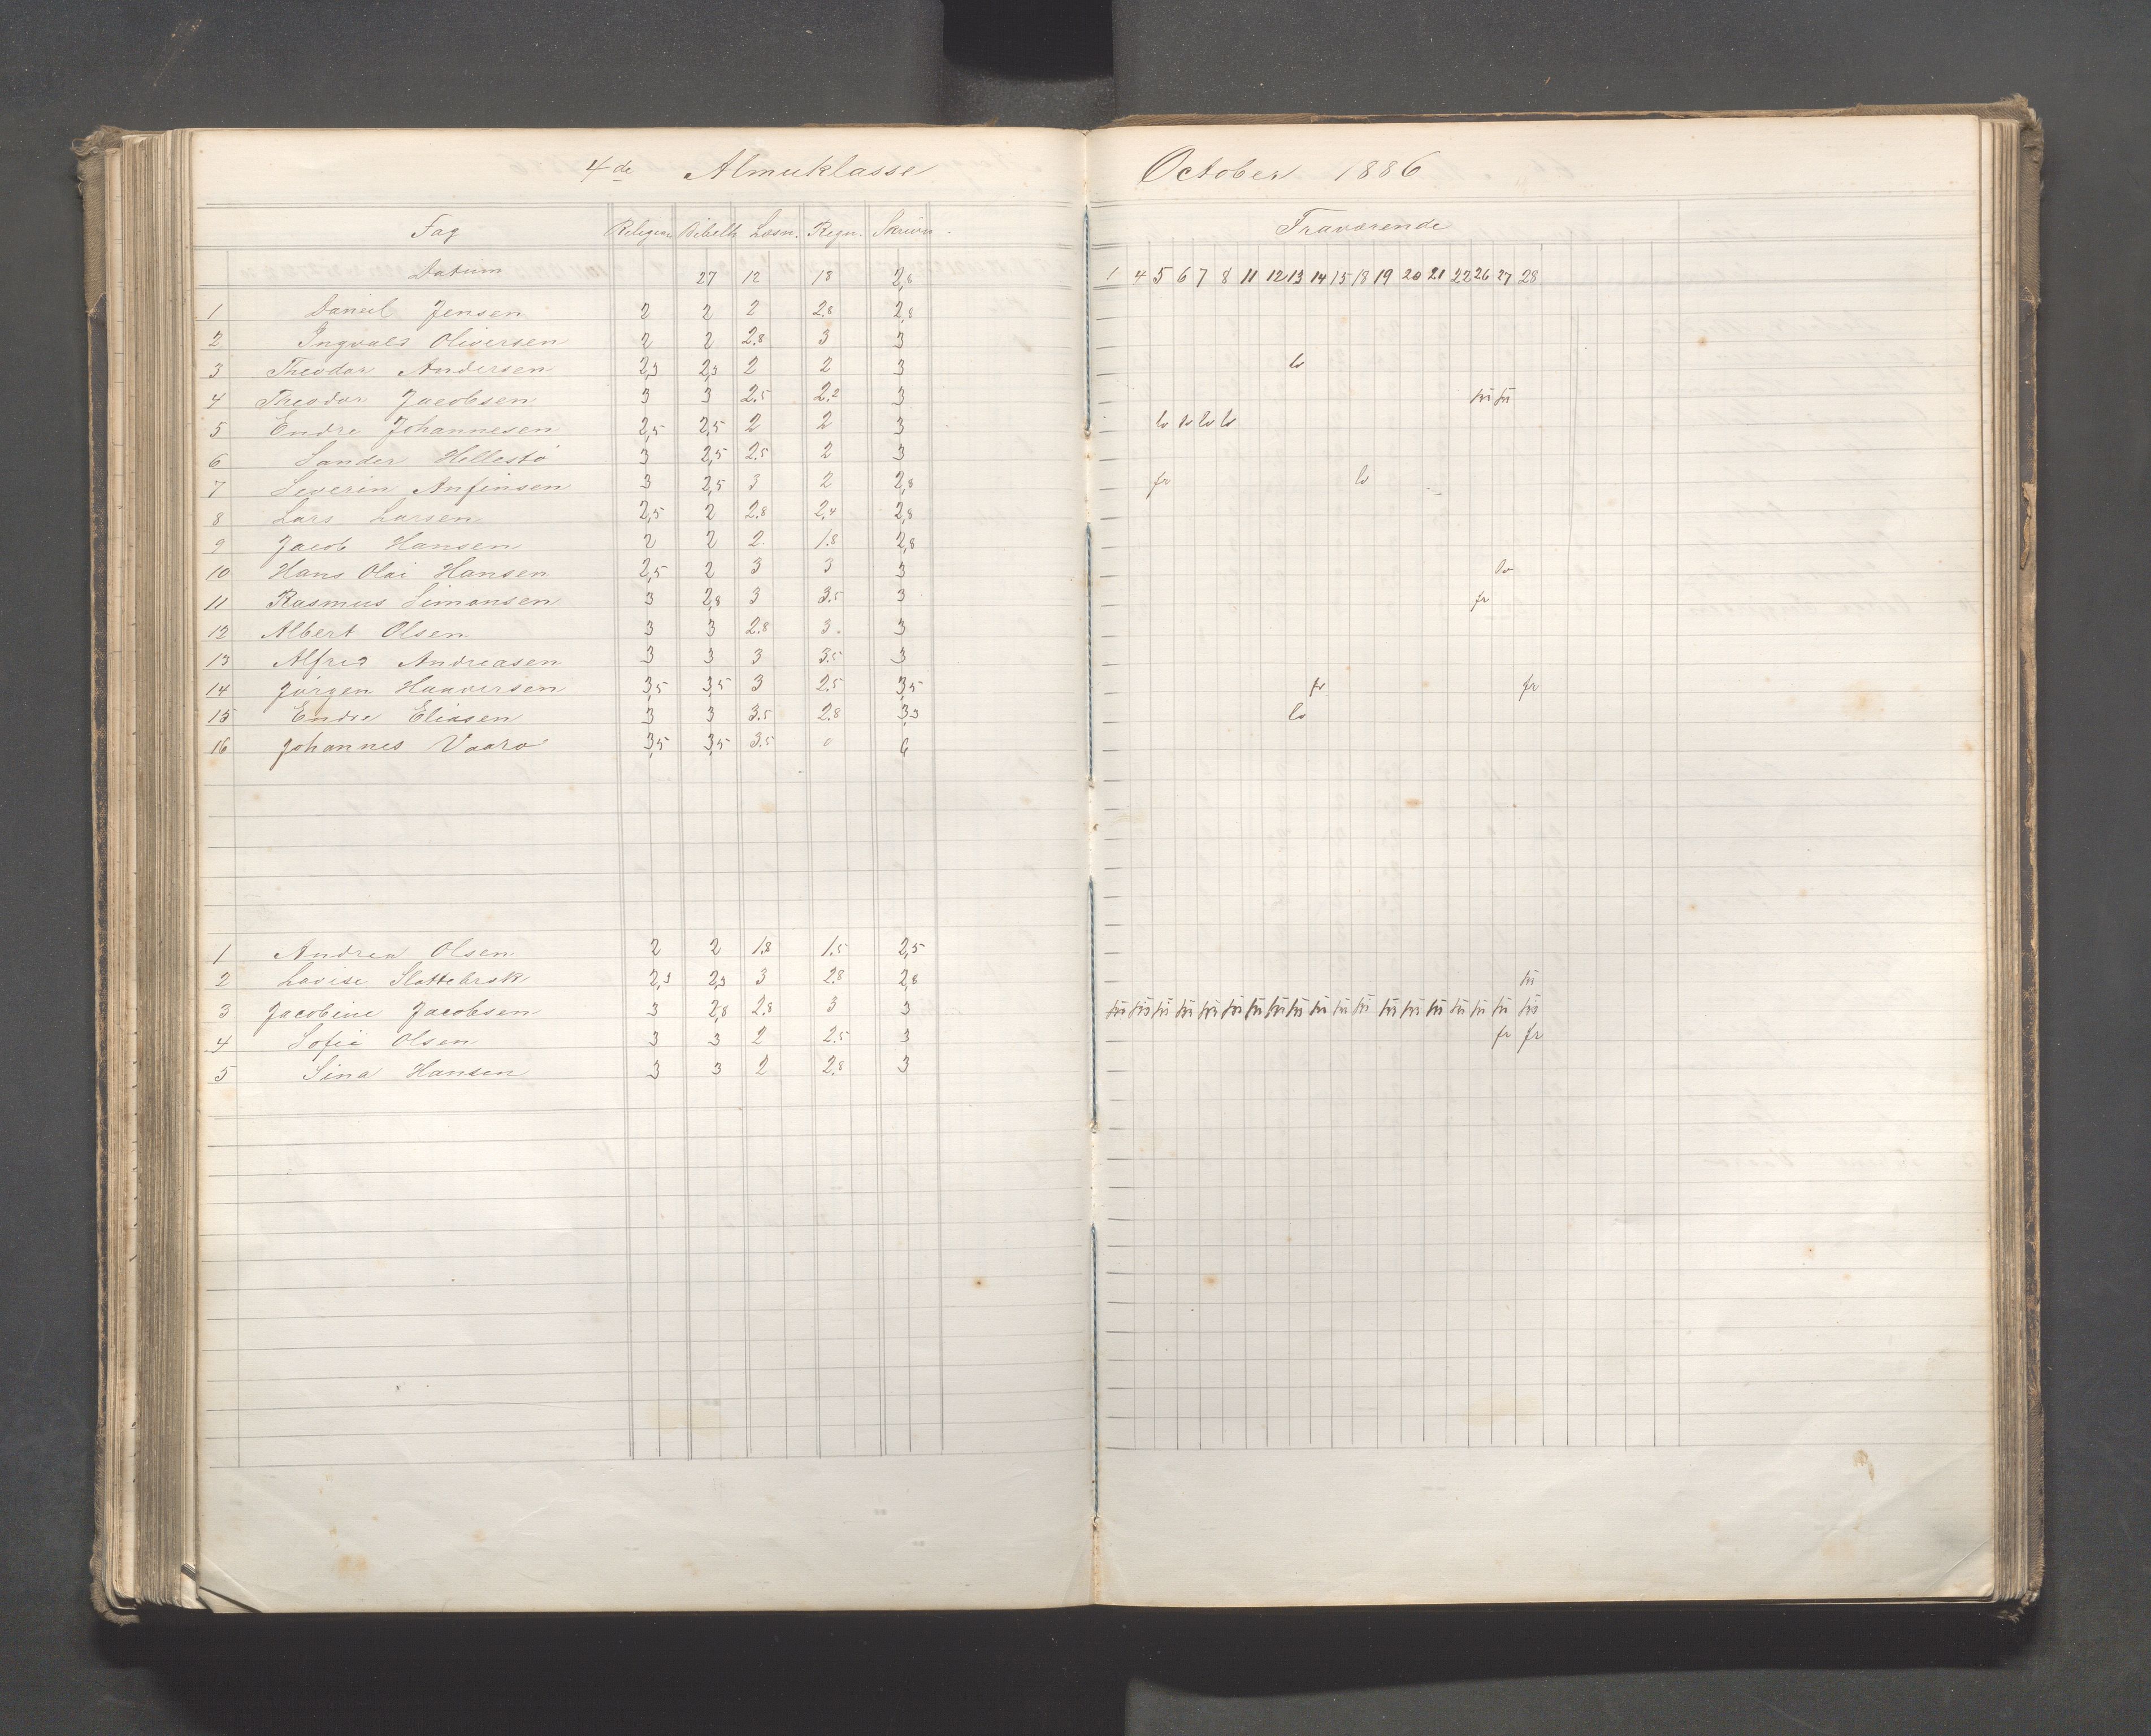 4de Almuklasse
Fag Religion Bibelh Læsn. Regn. Skrivn.
Datum 27 12 18 2,8
1 Daniel Jensen 2 2 2 2.8 2,8
2 Ingvald Oliversen 2 2 2.8 3 3
3 Theodor Andersen 2,3 2,3 2 2 3
4 Theodor Jacobsen 3 3 2.5 2.2 3
5 Endre Johannesen 2,5 2,5 2 2 3
6 Sander Hellestö 3 2,5 2.5 2 3
7 Severin Anfinsen 3 2,5 3 2 2,8
8 Lars Larsen 2,5 2 2.8 2,4 2,8
9 Jacob Hansen 2 2 2. 1.8 2,8
10 Hans Olai Hansen 2,5 2 3 3 3
11 Rasmus Simonsen 3 2,8 3 3.5 3
12 Albert Olsen 3 3 2.8 3. 3
13 Alfred Andreasen 3 3 3 3.5 3
14 Jörgen Haaversen 3,5 3,5 3 2.5 3,5
15 Endre Eliasen 3 3 3.5 2.8 3,3
16 Johannes Vaaro 3,5 3,5 3.5 0 6
1 Andrea Olsen 2 2 1.8 1.5 2,5
2 Lovise 2,3 2,3 3 2.8 2,8
3 Jacobine Jacobsen 3 2,8 2.8 3 3
4 Sofie Olsen 3 3 2 2.5 3
5 Sina Hansen 3 3 2 2.8 3
October 1886
Fraværende
1 4 5 6 7 8 11 12 13 14 15 18 19 20 21 22 26 27 28
lo
lo lo lo lo
fr lo
lo
fr
fr fr
lo
fr fr